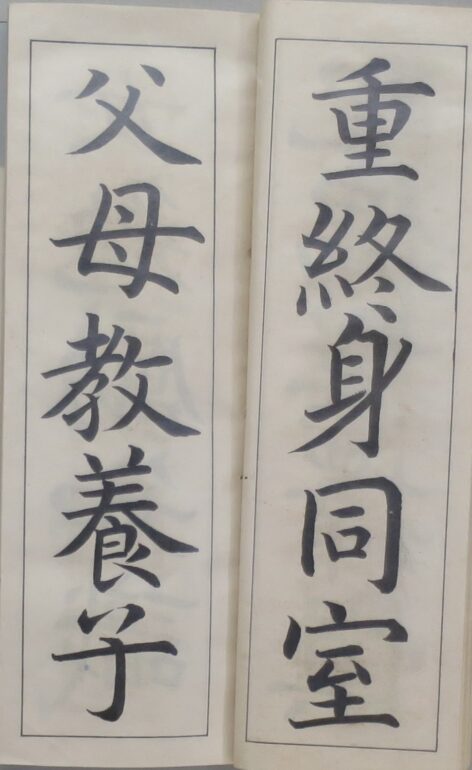 重終身同室
父母教養子